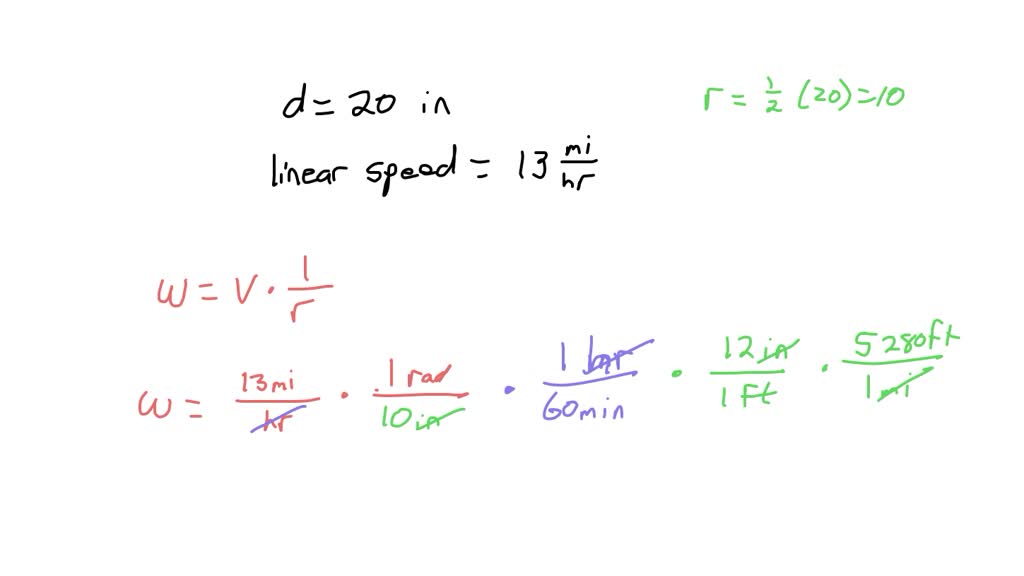 d = 20 in
r = 1/2 (20) = 10
linear speed = 13 mi/hr
ω = V · 1/r
ω = 13mi/hr · 1 rad/10in · 1 hr/60min · 12in/1ft · 5280ft/1mi